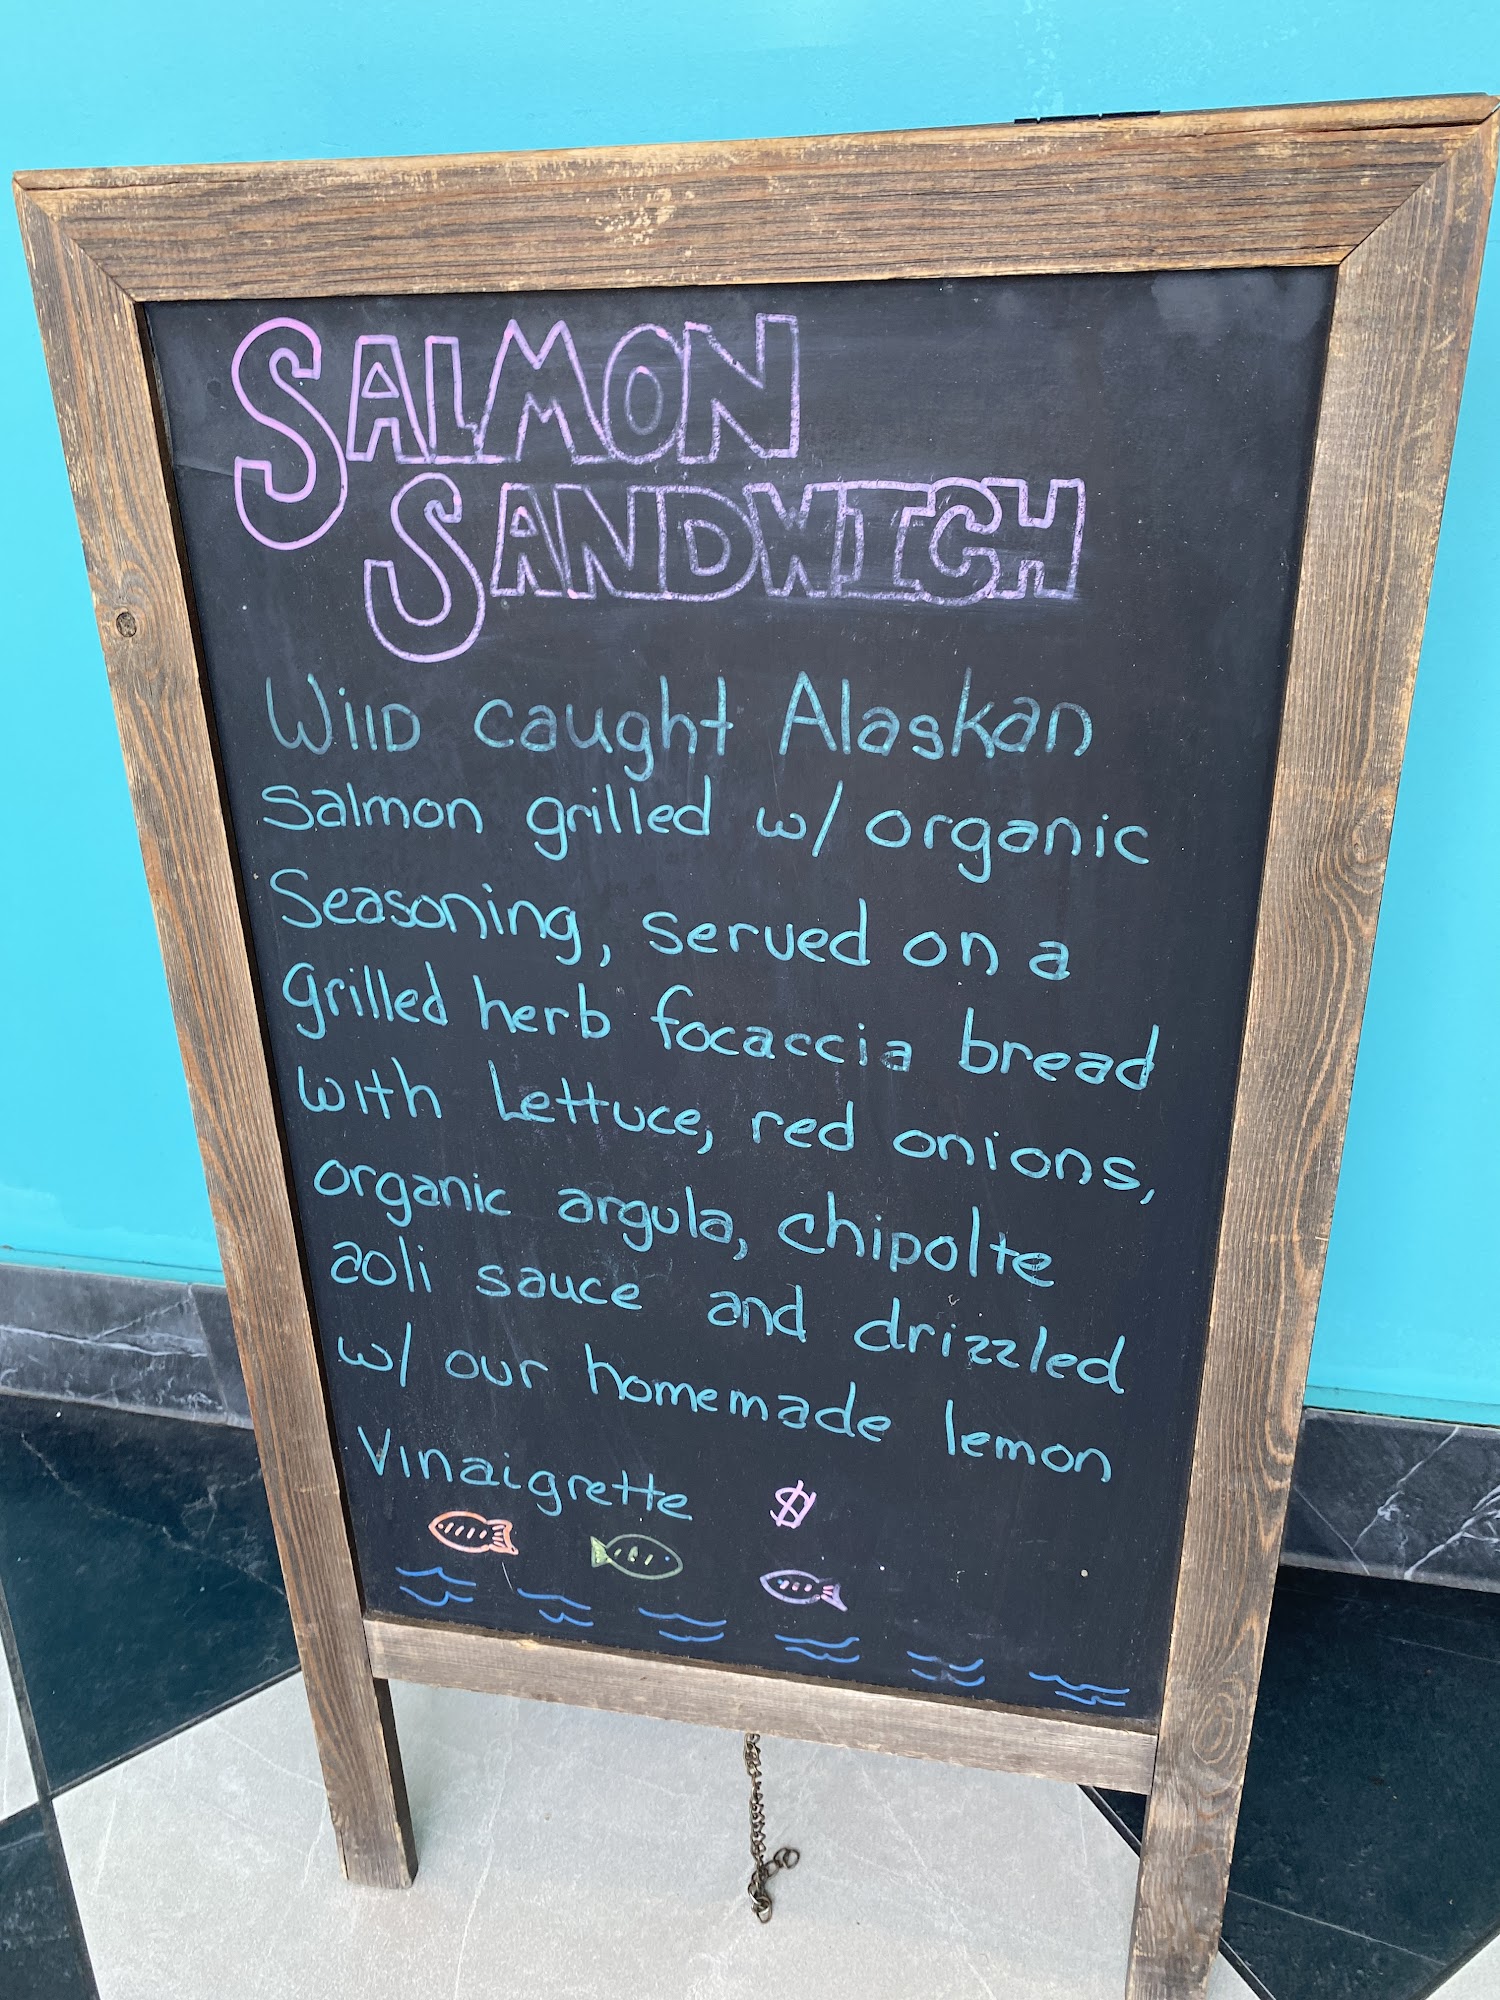 SALMON
SANDWICH
Wild caught Alaskan
salmon grilled w/ organic
Seasoning, served on a
grilled herb focaccia bread
with Lettuce, red onions,
organic argula, chipolte
aoli sauce and drizzled
w/ our homemade lemon
Vinaigrette $